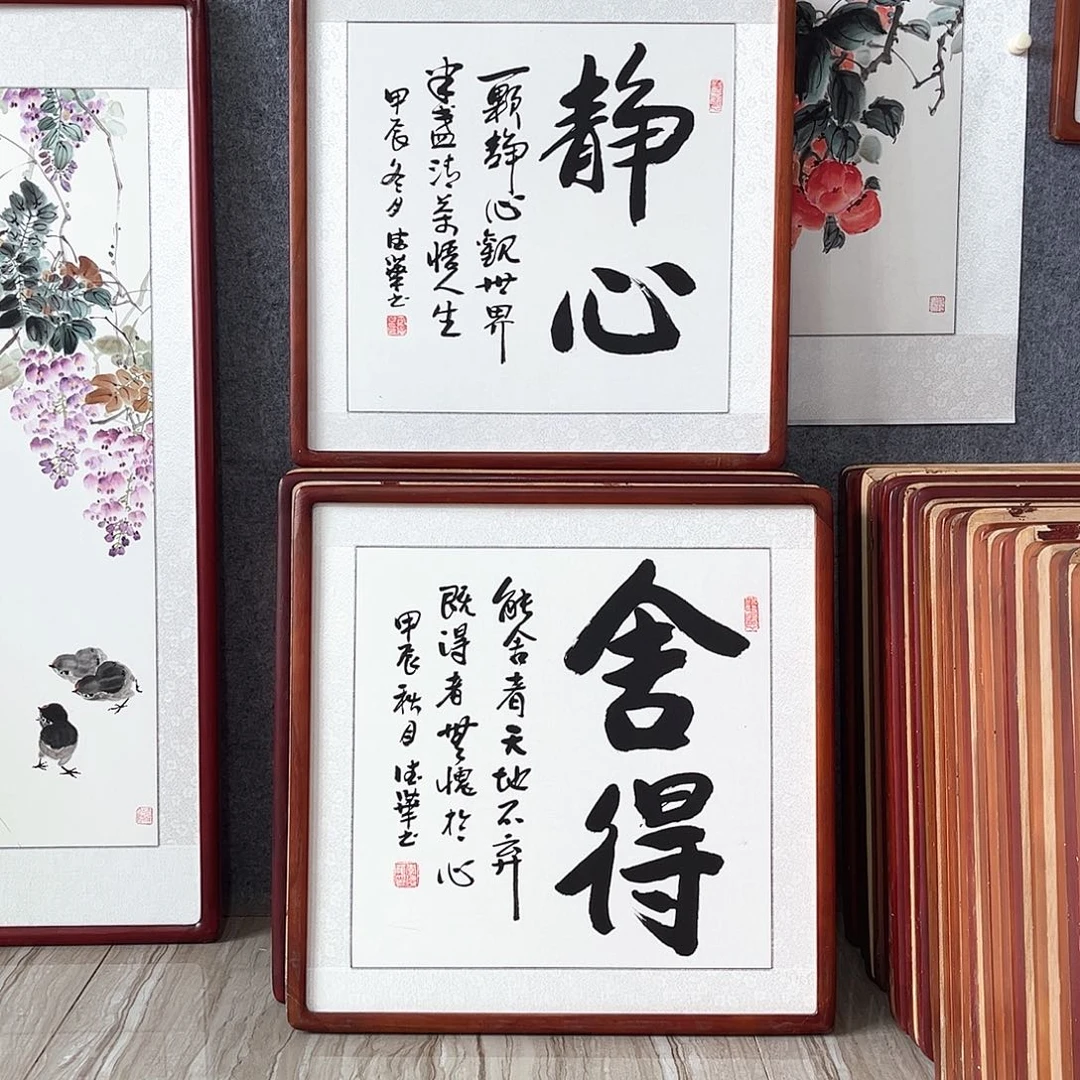 静心
一顆静心觀世界
半盏清茶悟人生
甲辰冬月德華书
舍得
能舍者天地不弃
既得者無愧於心
甲辰秋月德華书